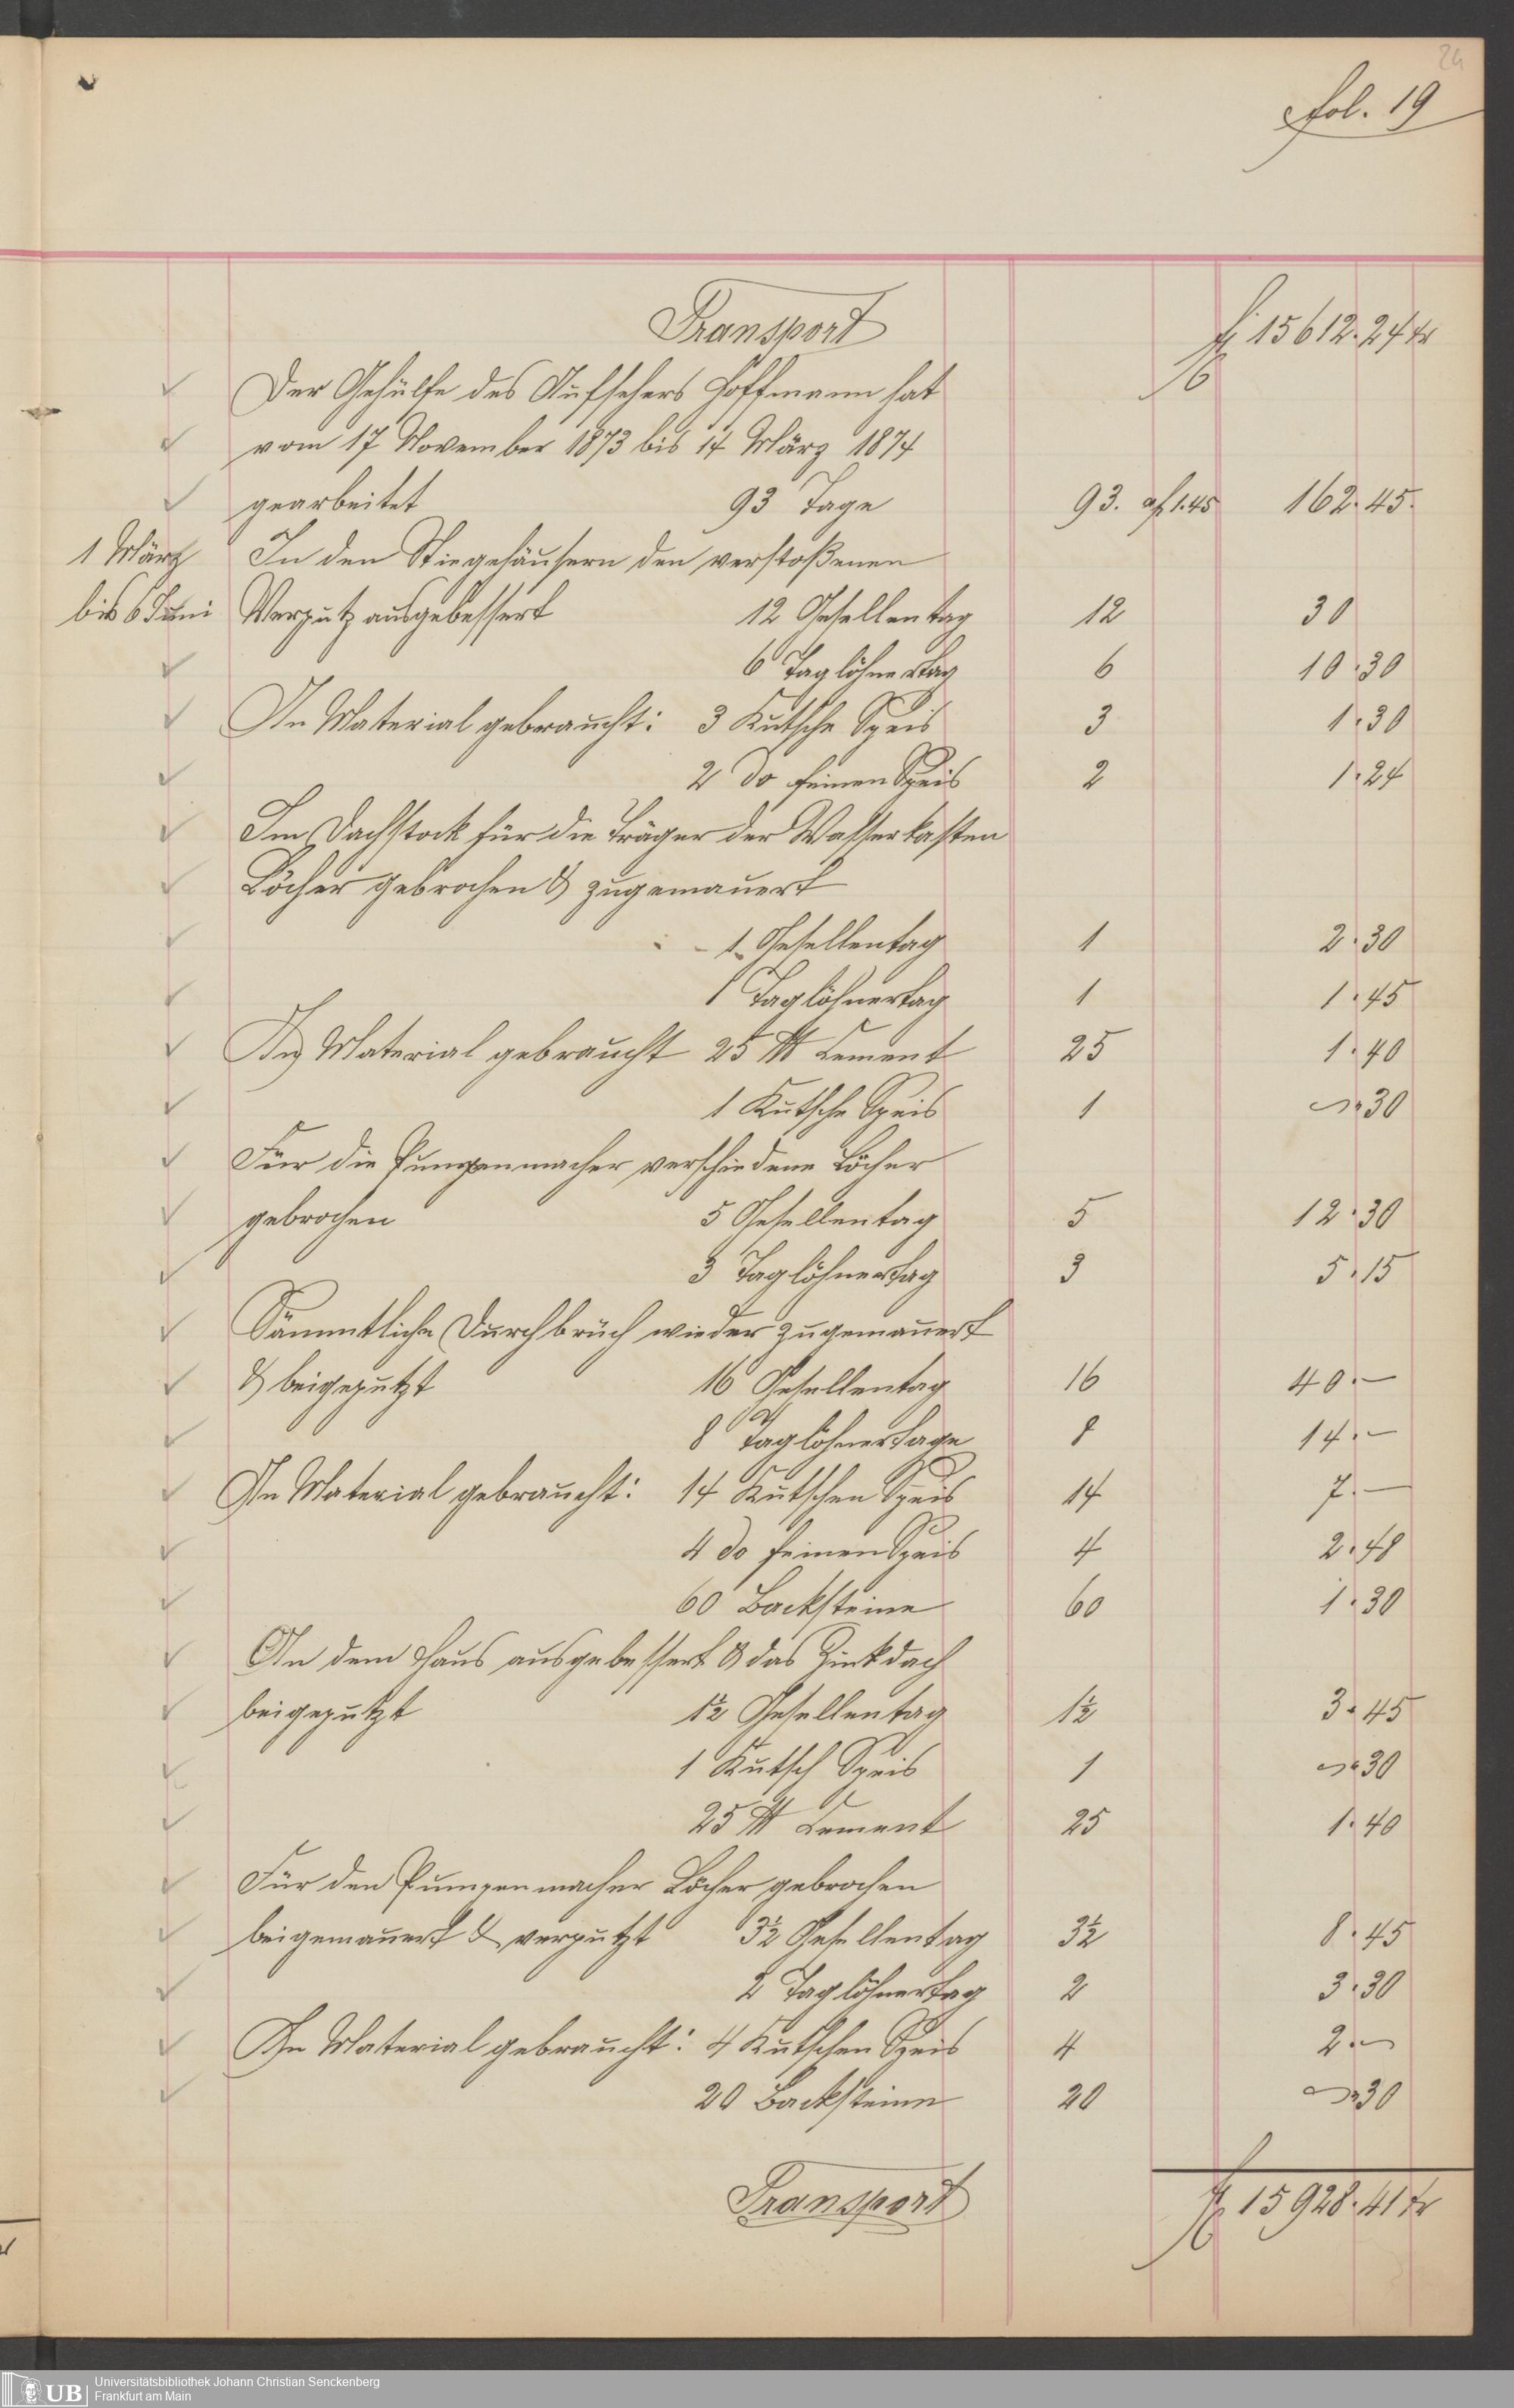 24
fol. 19
Transport f 15612.24 kr
Der Gehülfe des Aufsehers Hoffmann hat
vom 17 November 1873 bis 14 März 1874
gearbeitet 93 Tage 93. a f 1.45 162.45.
1 März In den Stiegehäusern den verstoßenen
bis 6 Juni Verputz ausgebessert 12 Gesellentag 12 30
6 Taglöhnertag 6 10.30
An Material gebraucht: 3 Kutsche Speis 3 1.30
2 do feinen Speis 2 1.24
Im Dachstock für die Träger der Wasserkasten
Löcher gebrochen & zugemauert
1 Gesellentag 1 2.30
1 Taglöhnertag 1 1.45
An Material gebraucht 25 ℔ Cement 25 1.40
1 Kutsche Speis 1 –.30
Für die Pumpenmacher verschiedene Löcher
gebrochen 5 Gesellentag 5 12.30
3 Taglöhnertag 3 5.15
Sämmtliche Durchbrüch wieder zugemauert
& beigeputzt 16 Gesellentag 16 40.–
8 Taglöhnertage 8 14.–
An Material gebraucht: 14 Kutschen Speis 14 7.–
4 do feinen Speis 4 2.48
60 Backsteine 60 1.30
An dem Haus ausgebessert & das Zinkdach
beigeputzt 1½ Gesellentag 1½ 3.45
1 Kutsch Speis 1 –.30
25 ℔ Cement 25 1.40
Für den Pumpenmacher Löcher gebrochen
beigemauert & verputzt 3½ Gesellentag 3½ 8.45
2 Taglöhnertag 2 3.30
An Material gebraucht: 4 Kutschen Speis 4 2.–
20 Backsteine 20 –.30
Transport f 15928.41 kr
UB Universitätsbibliothek Johann Christian Senckenberg
Frankfurt am Main